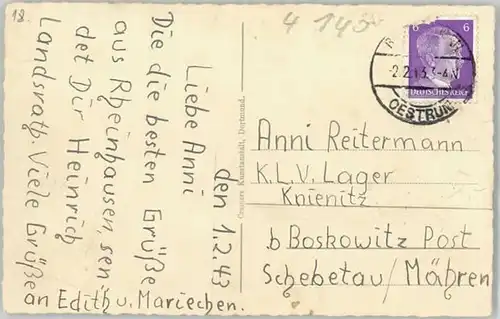 18.
4 145
den 1.2.43
Liebe Anni
Die die besten Grüße
aus Rheinhausen sen
det Dir Heinrich
Landsrath. Viele Grüße
an Edith u. Mariechen.
Cramers Kunstanstalt, Dortmund.
6 6
DEUTSCHES REICH
-2.2.43.3-4.
OESTRUM
Anni Reitermann
K.L.V. Lager
Knienitz
b Boskowitz Post
Schebetau / Mähren